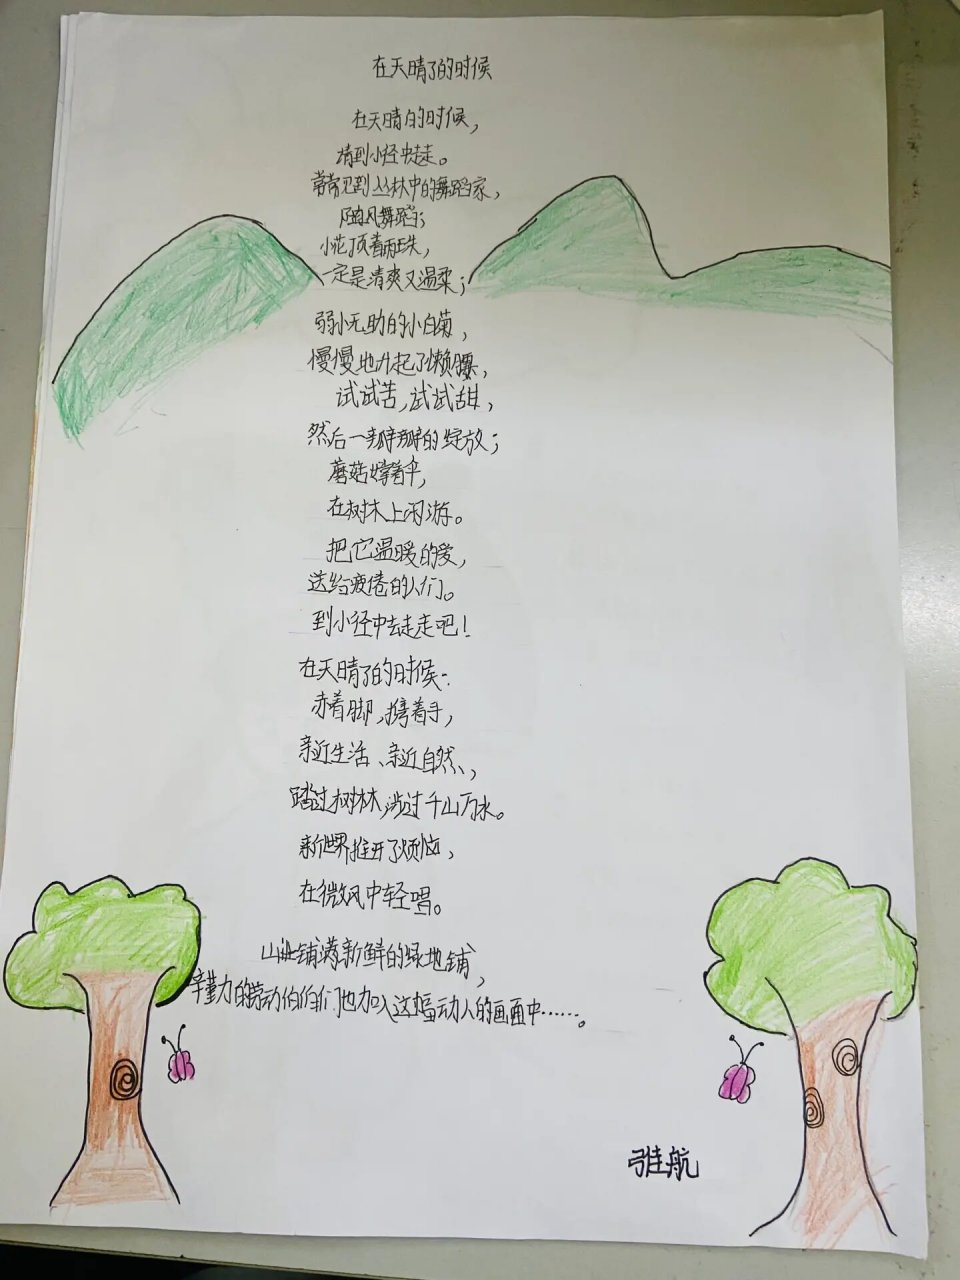 在天晴了的时候
在天晴的时候，
请到小径中走走。
常常见到丛林中的舞蹈家，
随风舞蹈；
小花顶着雨珠，
一定是清爽又温柔；
弱小无助的小白菊，
慢慢地升起了懒腰，
试试苦，试试甜，
然后一瓣瓣的绽放；
蘑菇撑着伞，
在树木上闲游。
把它温暖的爱，
送给疲倦的人们。
到小径中去走走吧！
在天晴了的时候：
赤着脚，携着手，
亲近生活、亲近自然、，
踏过树林，涉过千山万水。
新世界推开了烦恼，
在微风中轻唱。
山上铺满新鲜的绿地铺，
辛勤的劳动伯伯们也加入这幅动人的画面中……。
航